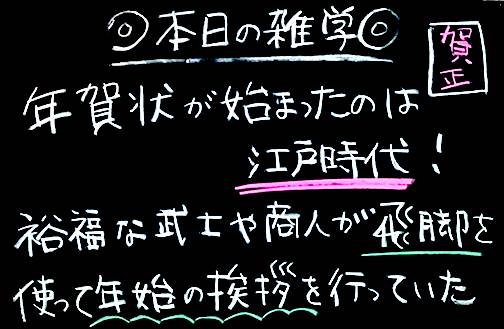 ◎本日の雑学◎
賀正
年賀状が始まったのは
江戸時代！
裕福な武士や商人が飛脚を
使って年始の挨拶を行っていた